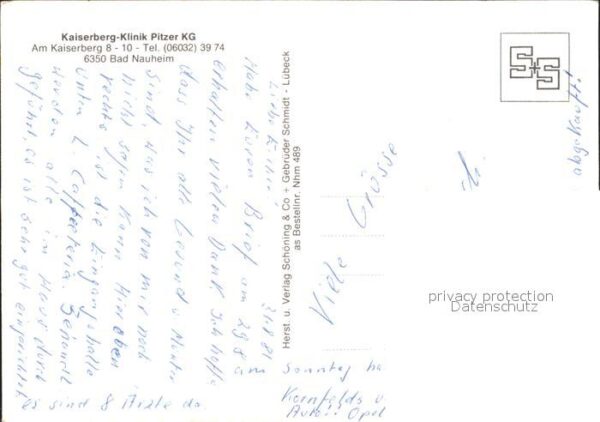 Kaiserberg-Klinik Pitzer KG
Am Kaiserberg 8 - 10 - Tel. (06032) 39 74
6350 Bad Nauheim
Liebe
Habe Euren Brief am 29.8 am
erhalten vielen Dank Ich hoffe
dass Ihr alle Gesund u. Munter
Sind, was ich von mir noch
nicht sagen kann hier oben
rechts ist die Eingangshalle
unten L. Caffeeteria.
werden alle im Haus durch
geführt, es ist sehr gut eingerichtet
es sind 8 Ärzte da.
Herst. u. Verlag Schöning & Co + Gebrüder Schmidt - Lübeck
as Bestellnr. Nhm 489
S+S
abgekauft!
Viele Grüsse
privacy protection
Datenschutz
Sonntag ha
Kornfelds u
Auto!! Opel